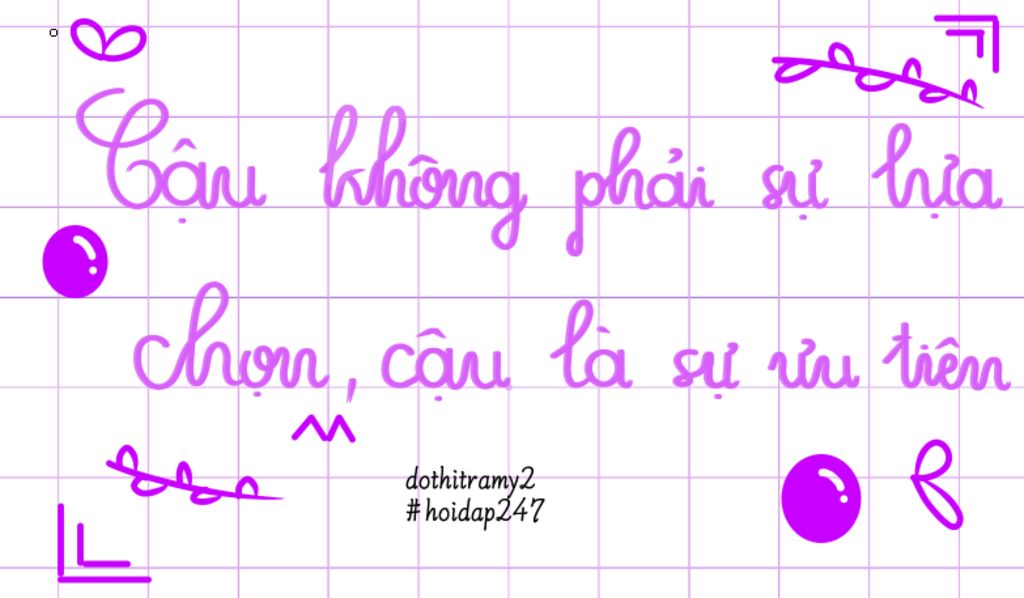 Cậu không phải sự lựa
chọn, cậu là sự ưu tiên
dothitramy2
#hoidap247